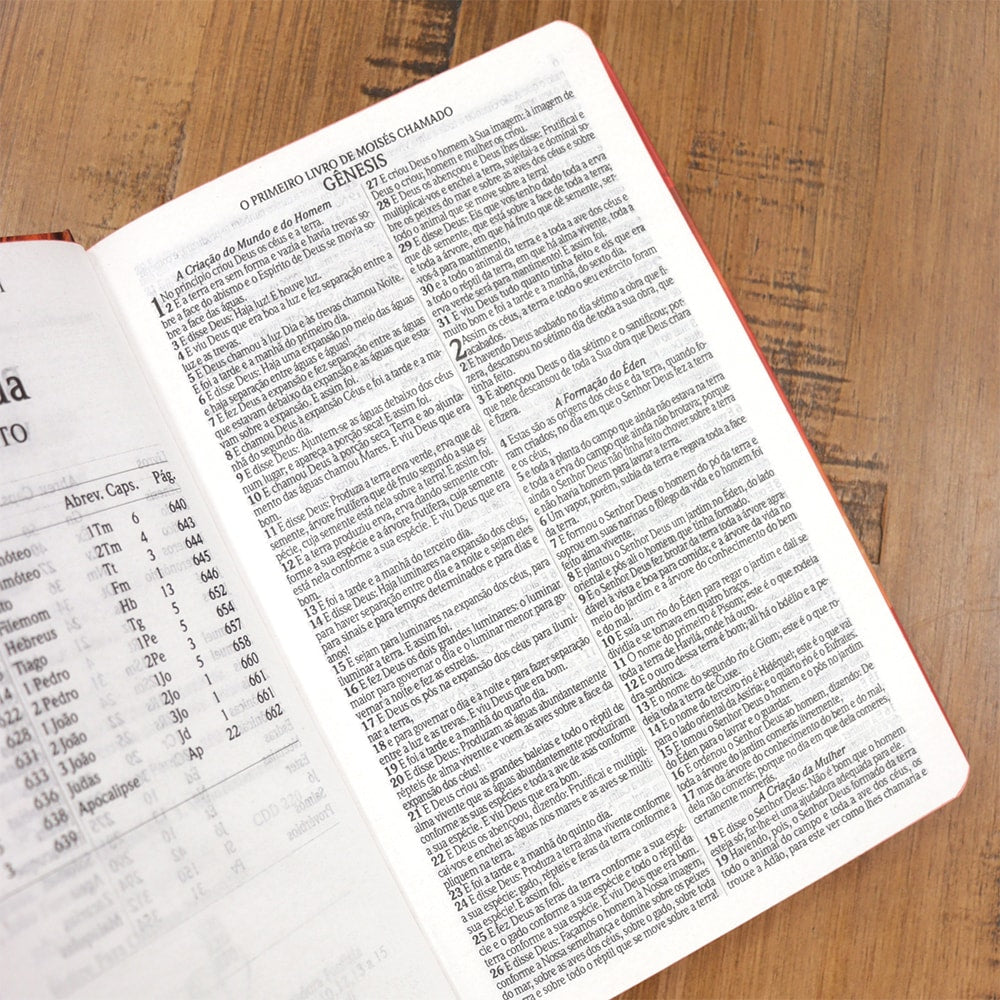 da
TO
Abrev. Caps. Pág.
1Tm 6 640
móteo 2Tm 4 643
imóteo Tt 3 644
to Fm 1 645
Filemom Hb 13 646
Hebreus Tg 5 652
Tiago 1Pe 5 654
1 Pedro 2Pe 3 657
622 2 Pedro 1Jo 5 658
628 1 João 2Jo 1 660
631 2 João 3Jo 1 661
633 3 João Jd 1 661
636 Judas Ap 22 662
638 Apocalipse
639
O PRIMEIRO LIVRO DE MOISÉS CHAMADO
GÊNESIS
A Criação do Mundo e do Homem
1 No princípio criou Deus os céus e a terra.
2 E a terra era sem forma e vazia e havia trevas so-
bre a face do abismo e o Espírito de Deus se movia so-
bre a face das águas.
3 E disse Deus: Haja luz! E houve luz.
4 E viu Deus que era boa a luz e fez separação entre a
luz e as trevas.
5 E Deus chamou à luz Dia e às trevas chamou Noite.
E foi a tarde e a manhã do primeiro dia.
6 E disse Deus: Haja uma expansão no meio das águas
e haja separação entre águas e águas!
7 E fez Deus a expansão e fez separação entre as águas
que estavam debaixo da expansão e as águas que esta-
vam sobre a expansão. E assim foi.
8 E chamou Deus à expansão Céus e foi a tarde e a ma-
nhã do segundo dia.
9 E disse Deus: Ajuntem-se as águas debaixo dos céus
num lugar, e apareça a porção seca! E assim foi.
10 E chamou Deus à porção seca Terra e ao ajunta-
mento das águas chamou Mares. E viu Deus que era
bom.
11 E disse Deus: Produza a terra erva verde, erva que dê
semente, árvore frutífera que dê fruto segundo a sua es-
pécie, cuja semente está nela sobre a terra! E assim foi.
12 E a terra produziu erva, erva dando semente con-
forme a sua espécie e a árvore frutífera, cuja semente
está nela conforme a sua espécie. E viu Deus que era
bom.
13 E foi a tarde e a manhã do terceiro dia.
14 E disse Deus: Haja luminares na expansão dos céus,
para haver separação entre o dia e a noite e sejam eles
para sinais e para tempos determinados e para dias e
anos!
15 E sejam para luminares na expansão dos céus, para
iluminar a terra. E assim foi.
16 E fez Deus os dois grandes luminares: o luminar
maior para governar o dia e o luminar menor para go-
vernar a noite e fez as estrelas.
17 E Deus os pôs na expansão dos céus para ilumi-
nar a terra,
18 e para governar o dia e a noite e para fazer separação
entre a luz e as trevas. E viu Deus que era bom.
19 E foi a tarde e a manhã do quarto dia.
20 E disse Deus: Produzam as águas abundantemente
répteis de alma vivente e voem as aves sobre a face da
expansão dos céus!
21 E Deus criou as grandes baleias e todo o réptil de
alma vivente que as águas abundantemente produziram
conforme as suas espécies e toda a ave de asas conforme
a sua espécie. E viu Deus que era bom.
22 E Deus os abençoou, dizendo: Frutificai e multipli-
cai-vos e enchei as águas nos mares e as aves se multi-
pliquem na terra.
23 E foi a tarde e a manhã do quinto dia.
24 E disse Deus: Produza a terra alma vivente conforme
a sua espécie: gado, répteis e feras da terra conforme a
sua espécie! E assim foi.
25 E fez Deus as feras da terra conforme a sua espé-
cie e o gado conforme a sua espécie e todo o réptil da
terra conforme a sua espécie. E viu Deus que era bom.
26 E disse Deus: Façamos o homem à Nossa imagem,
conforme a Nossa semelhança e domine sobre os peixes
do mar, sobre as aves dos céus, sobre o gado, sobre toda
e sobre todo o réptil que se move sobre a terra!
27 E criou Deus o homem à Sua imagem: à imagem de
Deus o criou; homem e mulher os criou.
28 E Deus os abençoou e Deus lhes disse: Frutificai e
multiplicai-vos e enchei a terra, sujeitai-a e dominai so-
bre os peixes do mar e sobre as aves dos céus e sobre
todo o animal que se move sobre a terra!
29 E disse Deus: Eis que vos tenho dado toda a erva
que dê semente, que está sobre a face de toda a terra;
e toda a árvore, em que há fruto que dê semente, ser-
vos-á para mantimento!
30 e a todo o animal da terra e a toda a ave dos céus e
a todo o réptil da terra, em que há alma vivente, toda a
erva verde será para mantimento! E assim foi.
31 E viu Deus tudo quanto tinha feito e eis que era
muito bom e foi a tarde e a manhã, do sexto dia.
2 Assim os céus, a terra e todo o seu exército foram
acabados.
2 E havendo Deus acabado no dia sétimo a obra que fi-
zera, descansou no sétimo dia de toda a sua obra, que
tinha feito.
3 E abençoou Deus o dia sétimo e o santificou; por-
que nele descansou de toda a Sua obra que Deus criara
e fizera.
A Formação do Éden
4 Estas são as origens dos céus e da terra, quando fo-
ram criados; no dia em que o Senhor Deus fez a terra
e os céus,
5 e toda a planta do campo que ainda não estava na terra
e toda a erva do campo que ainda não brotava; porque
ainda o Senhor Deus não tinha feito chover sobre a terra
e não havia homem para lavrar a terra.
6 Um vapor, porém, subia da terra e regava toda a face
da terra.
7 E formou o Senhor Deus o homem do pó da terra e
soprou em suas narinas o fôlego da vida e o homem foi
feito alma vivente.
8 E plantou o Senhor Deus um jardim no Éden, do lado
oriental e pôs ali o homem que tinha formado.
9 E o Senhor Deus fez brotar da terra toda a árvore agra-
dável à vista e boa para comida; e a árvore da vida no
meio do jardim e a árvore do conhecimento do bem
e do mal.
10 E saía um rio do Éden para regar o jardim e dali se
dividia e se tornava em quatro braços.
11 O nome do primeiro é Pisom; este é o que rodeia
toda a terra de Havilá, onde há ouro.
12 E o ouro dessa terra é bom; ali há o bdélio e a pe-
dra sardônica.
13 E o nome do segundo rio é Giom; este é o que ro-
deia toda a terra de Cuxe.
14 E o nome do terceiro rio é Hidéquel; este é o que vai
para o lado oriental da Assíria; e o quarto rio é o Eufrates.
15 E tomou o Senhor Deus o homem e o pôs no jardim
do Éden para o lavrar e o guardar.
16 E ordenou o Senhor Deus ao homem, dizendo: De
toda a árvore do jardim comerás livremente,
17 mas da árvore do conhecimento do bem e do mal,
dela não comerás; porque no dia em que dela comeres,
certamente morrerás.
A Criação da Mulher
18 E disse o Senhor Deus: Não é bom que o homem
esteja só; far-lhe-ei uma ajudadora adequada para ele.
19 Havendo, pois, o Senhor Deus formado da terra
todo o animal do campo e toda a ave dos céus, os
trouxe a Adão, para este ver como lhes chamaria e